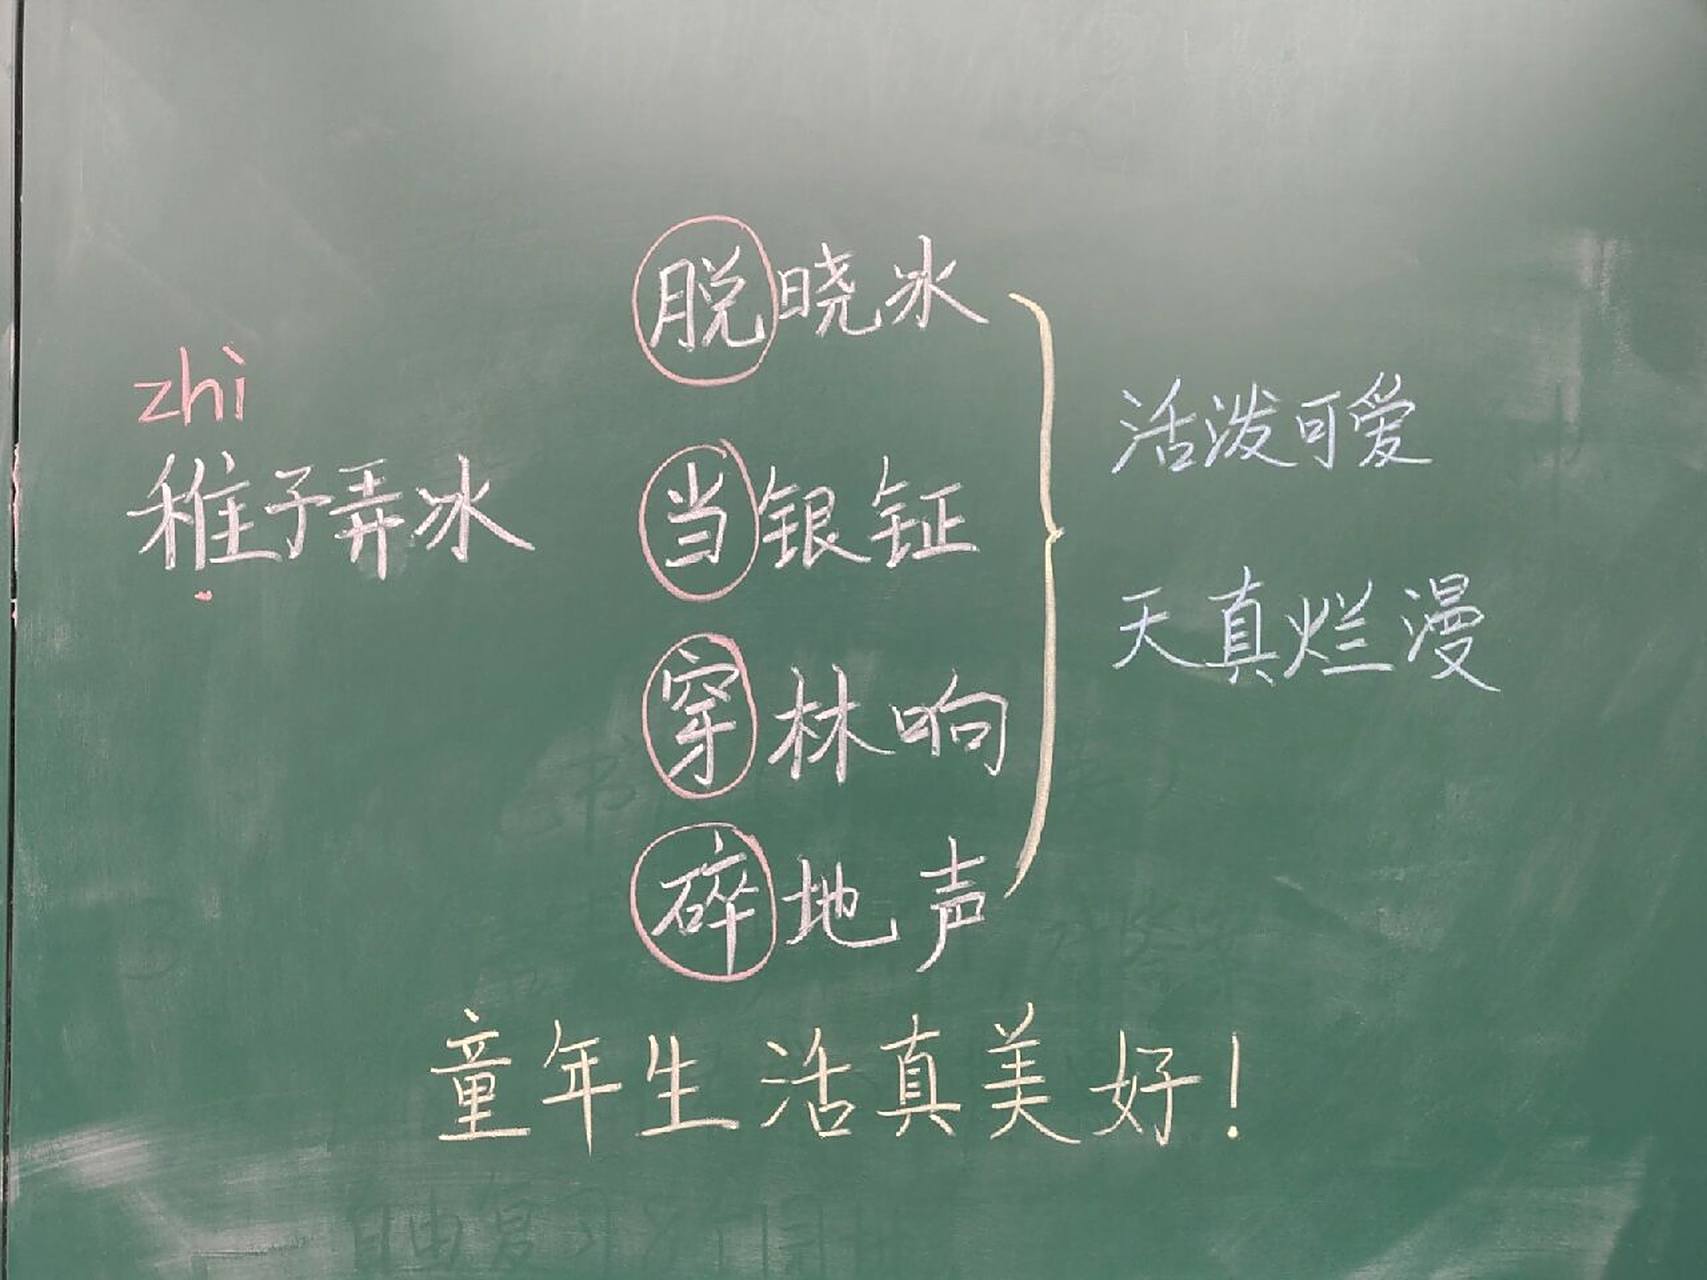 zhì
稚子弄冰
脱晓冰
当银钲
穿林响
碎地声
活泼可爱
天真烂漫
童年生活真美好！